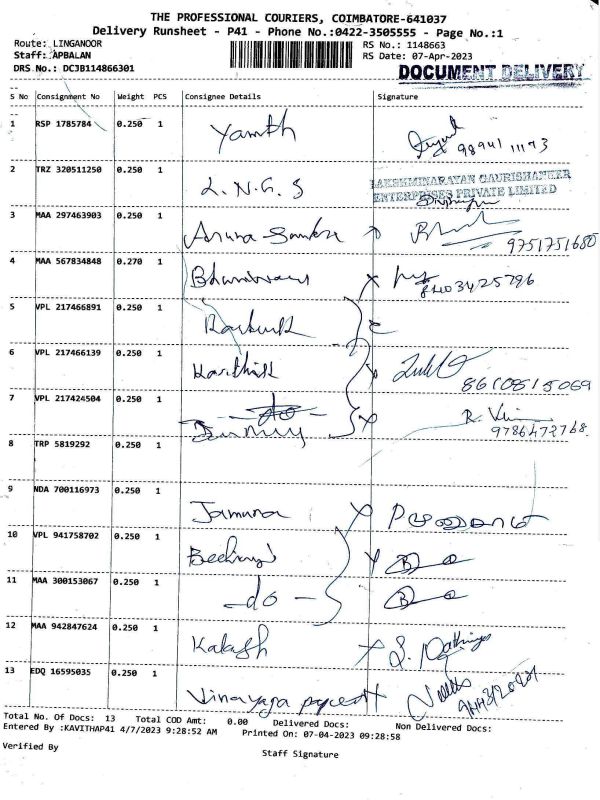 THE PROFESSIONAL COURIERS, COIMBATORE-641037
Delivery Runsheet - P41 - Phone No.:0422-3505555 - Page No.:1
Route: LINGANOOR
RS No.: 1148663
Staff: APBALAN
RS Date: 07-Apr-2023
DRS No.: DCJB114866301
DOCUMENT DELIVERY
S No Consignment No Weight PCS Consignee Details Signature
1 RSP 1785784 0.250 1 98941 11173
2 TRZ 320511250 0.250 1 L.N.G.S
LAKSHMINARAYAN GAURISHANKER
ENTERPRISES PRIVATE LIMITED
3 MAA 297463903 0.250 1 Aruna 9751751680
4 MAA 567834848 0.270 1
5 VPL 217466891 0.250 1
6 VPL 217466139 0.250 1 Karthik 8610815069
7 VPL 217424504 0.250 1 9786472768
8 TRP 5819292 0.250 1
9 NDA 700116973 0.250 1 Jamuna
10 VPL 941758702 0.250 1
11 MAA 300153067 0.250 1 -do-
12 MAA 942847624 0.250 1 Kalash
13 EDQ 16595035 0.250 1 Vinayaga
Total No. Of Docs: 13 Total COD Amt: 0.00 Delivered Docs: Non Delivered Docs:
Entered By :KAVITHAP41 4/7/2023 9:28:52 AM Printed On: 07-04-2023 09:28:58
Verified By
Staff Signature